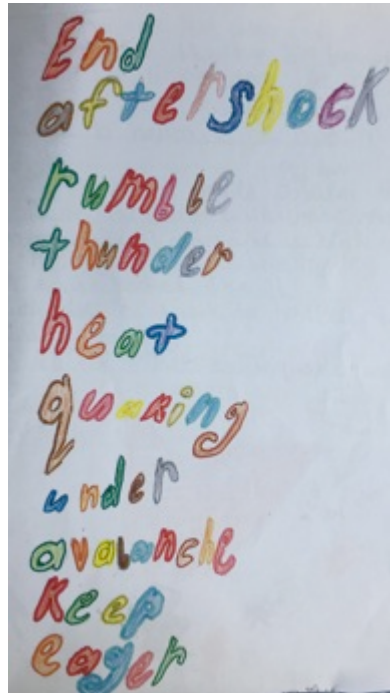 End
aftershock
rumble
thunder
heat
quaking
under
avalanche
Keep
eager